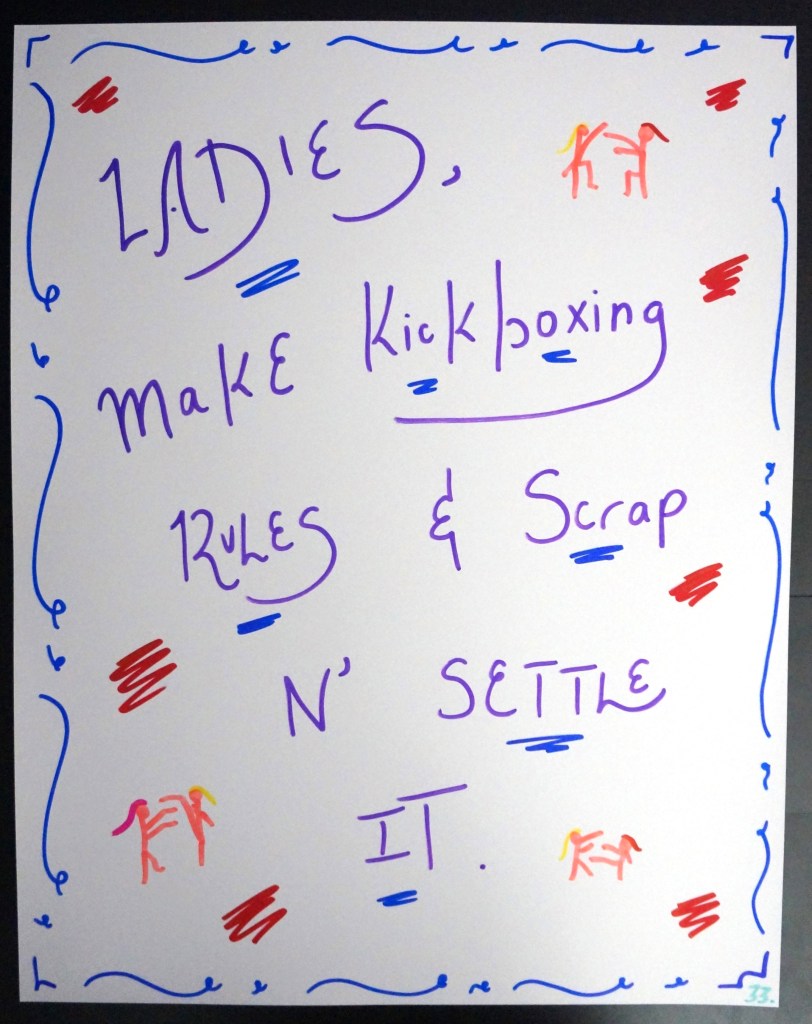 LADIES,
make Kickboxing
RULES & Scrap
N' SETTLE
IT.
33.